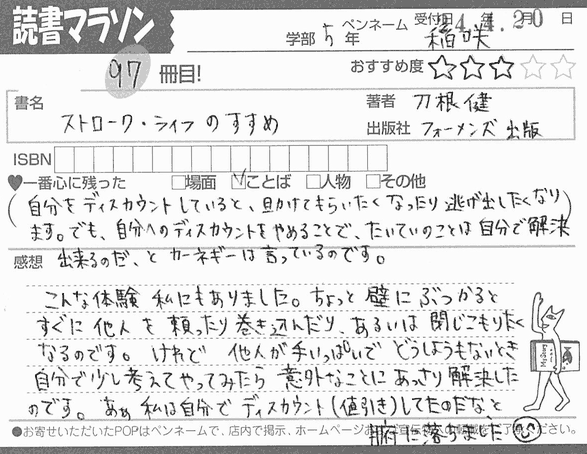 読書マラソン
学部 5 年 ペンネーム 稲咲 受付日 24年 4月20日
97 冊目!
おすすめ度 ☆☆☆☆☆
書名 ストローク・ライフのすすめ
著者 刀根 健
出版社 フォーメンズ出版
ISBN
♥一番心に残った □場面 ☑ことば □人物 □その他
(自分をディスカウントしていると、助けてもらいたくなったり逃げ出したくなり
ます。でも、自分へのディスカウントをやめることで、たいていのことは自分で解決
出来るのだ、とカーネギーは言っているのです。)
感想
こんな体験 私にもありました。ちょっと壁にぶつかると
すぐに他人を頼ったり巻き込んだり、あるいは閉じこもりたく
なるのです。けれど 他人が手いっぱいで どうしようもないとき
自分で少し考えてやってみたら 意外なことにあっさり解決した
のです。あぁ 私は自分で ディスカウント(値引き)してたのだなと
腑に落ちました
●お寄せいただいたPOPはペンネームで、店内で掲示、ホームページ